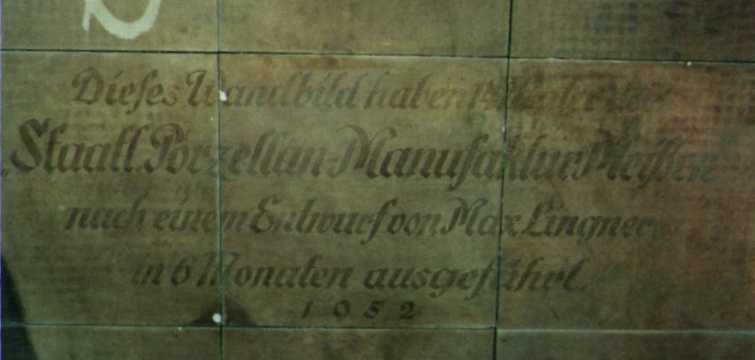 Dieses Wandbild haben 14 Maler der
Staatl. Porzellan-Manufaktur Meißen
nach einem Entwurf von Max Lingner
in 6 Monaten ausgeführt.
1952